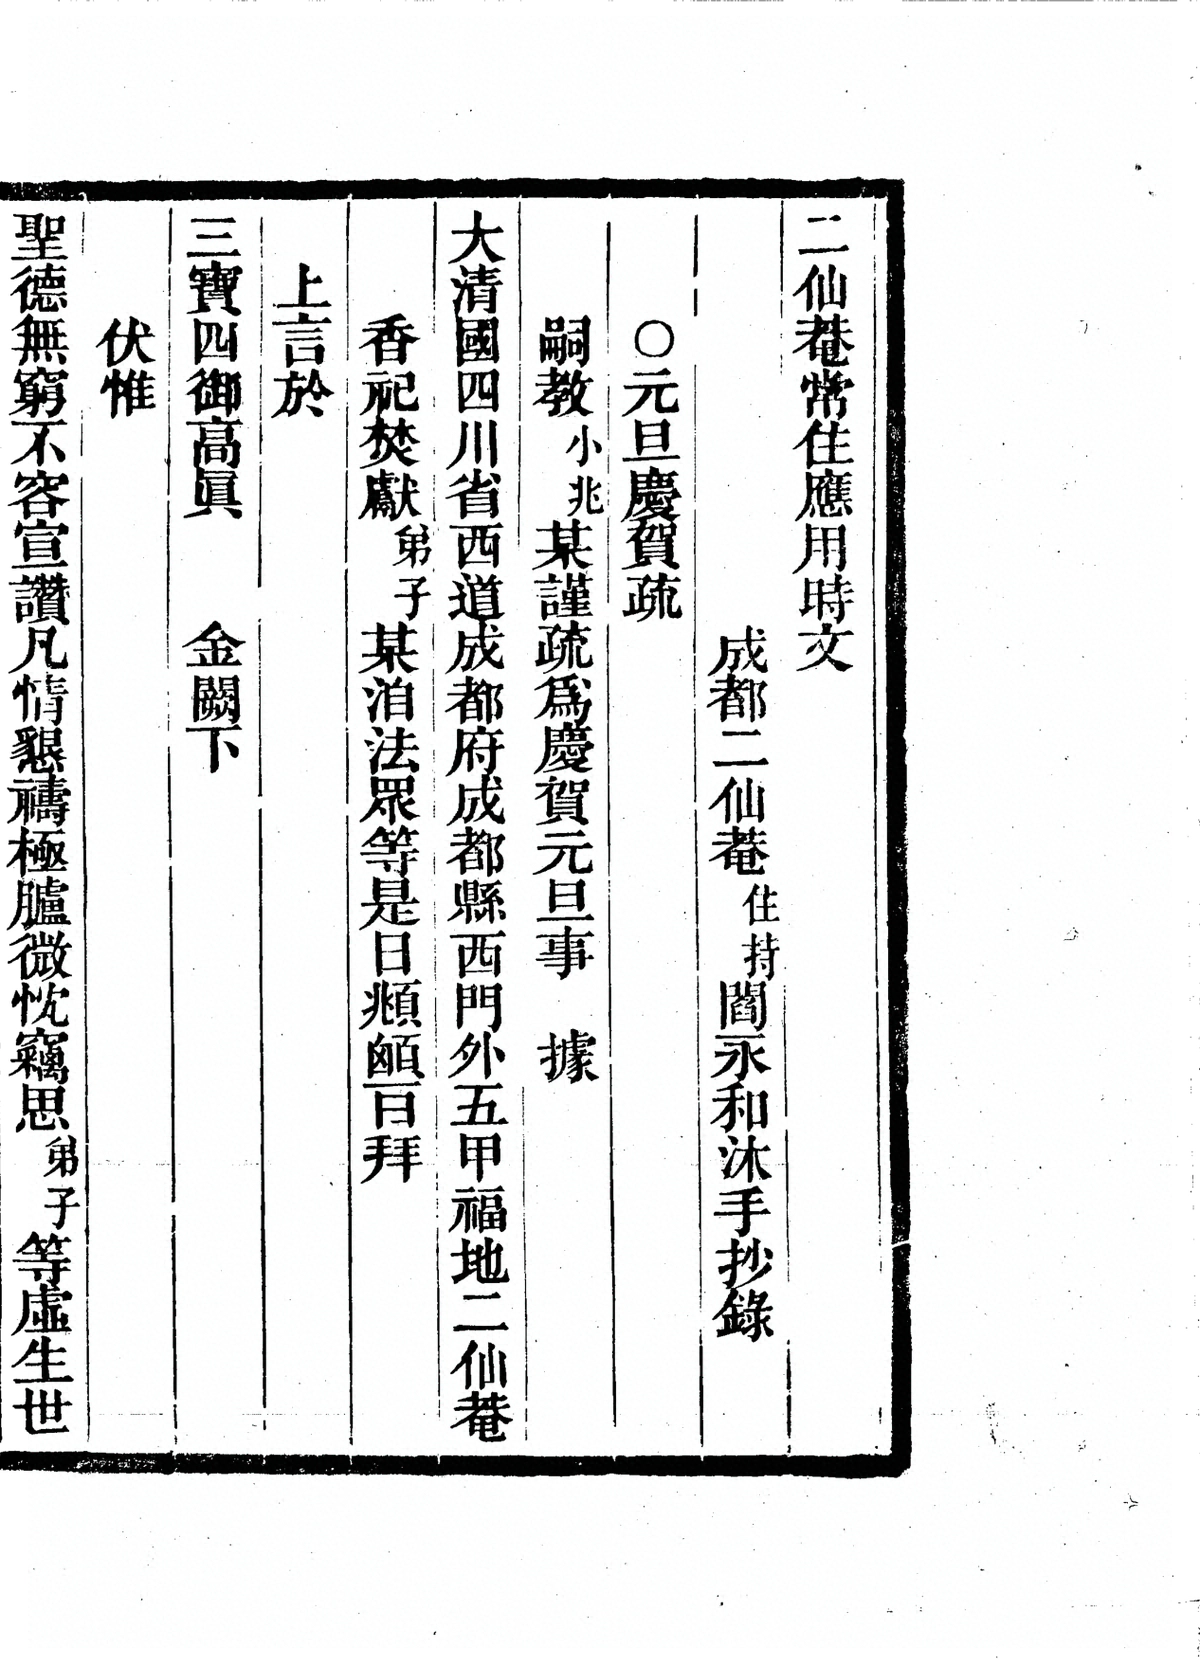 二仙菴常住應用時文
成都二仙菴住持閻永和沐手抄錄
○元旦慶賀疏
嗣教小兆某謹疏爲慶賀元旦事　據
大清國四川省西道成都府成都縣西門外五甲福地二仙菴
香祀焚獻弟子某洎法眾等是日頫顖百拜
上言於
三寶四御高眞　　金闕下
伏惟
聖德無窮不容宣讚凡情懇禱極臚微忱竊思弟子等虛生世